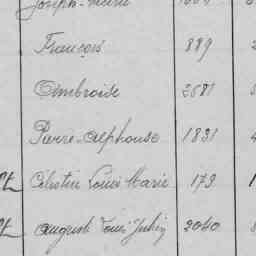 Joseph-Marie
François 889
Ambroise 2681
Pierre-Alphonse 1831
Célestin Louis Marie 173
Auguste Louis Julien 2040